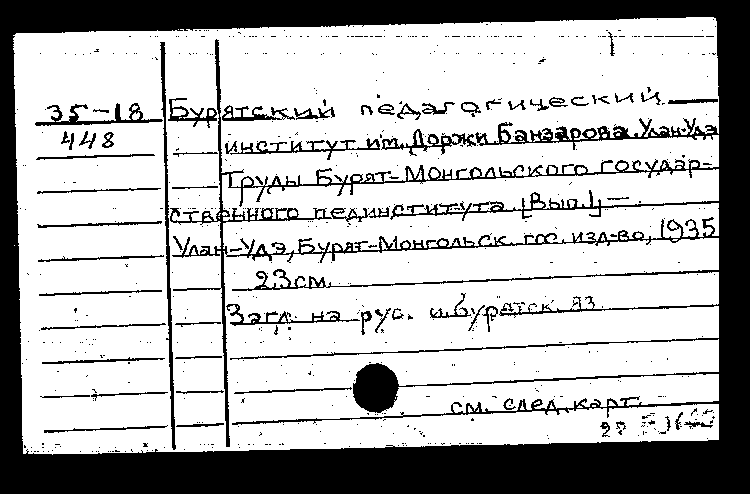 35-18 Бурятский педагогический
448 институт им. Доржи Банзарова. Улан-Удэ
Труды Бурят-Монгольского государ-
ственного пединститута. [Вып.1,] —
Улан-Удэ, Бурят-Монгольск. гос. изд-во, 1935
23см.
Загл. на рус. и бурятск. яз.
см. след. карт.